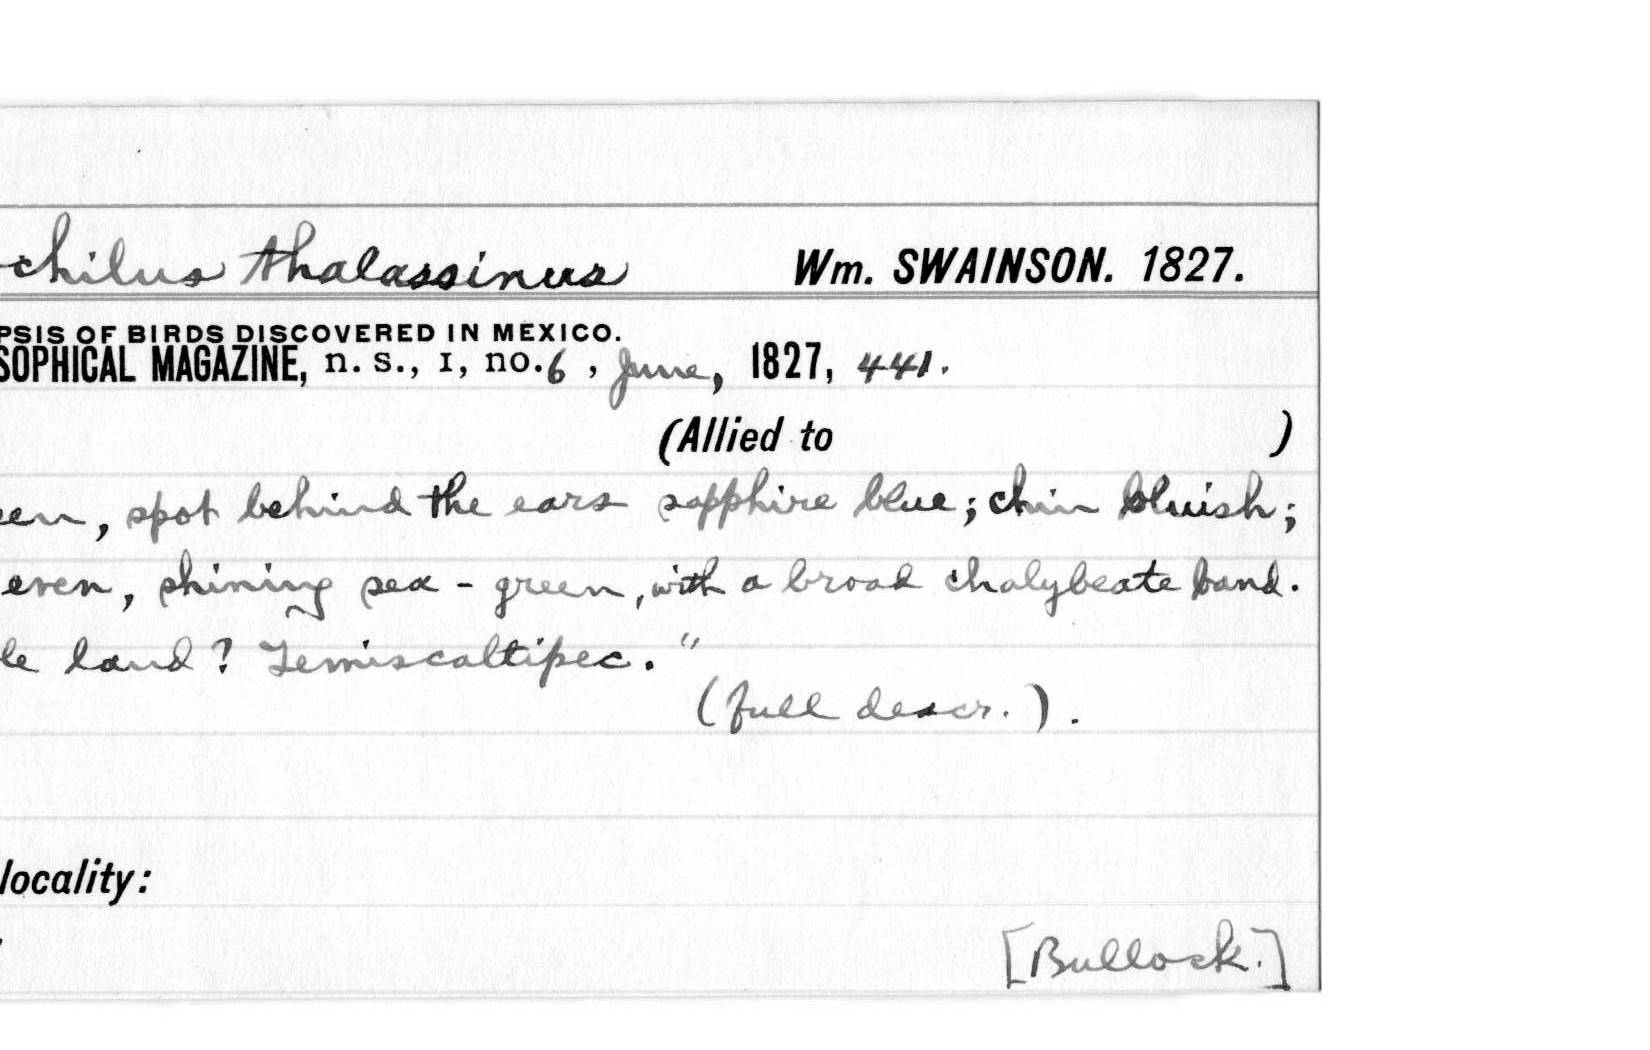 ochilus thalassinus Wm. SWAINSON. 1827.
PSIS OF BIRDS DISCOVERED IN MEXICO.
SOPHICAL MAGAZINE, n. s., I, no. 6, June, 1827, 441.
(Allied to )
een, spot behind the ears sapphire blue; chin bluish;
even, shining sea-green, with a broad chalybeate band.
le land? Temiscaltipec."
(full descr.).
locality:
[Bullock.]